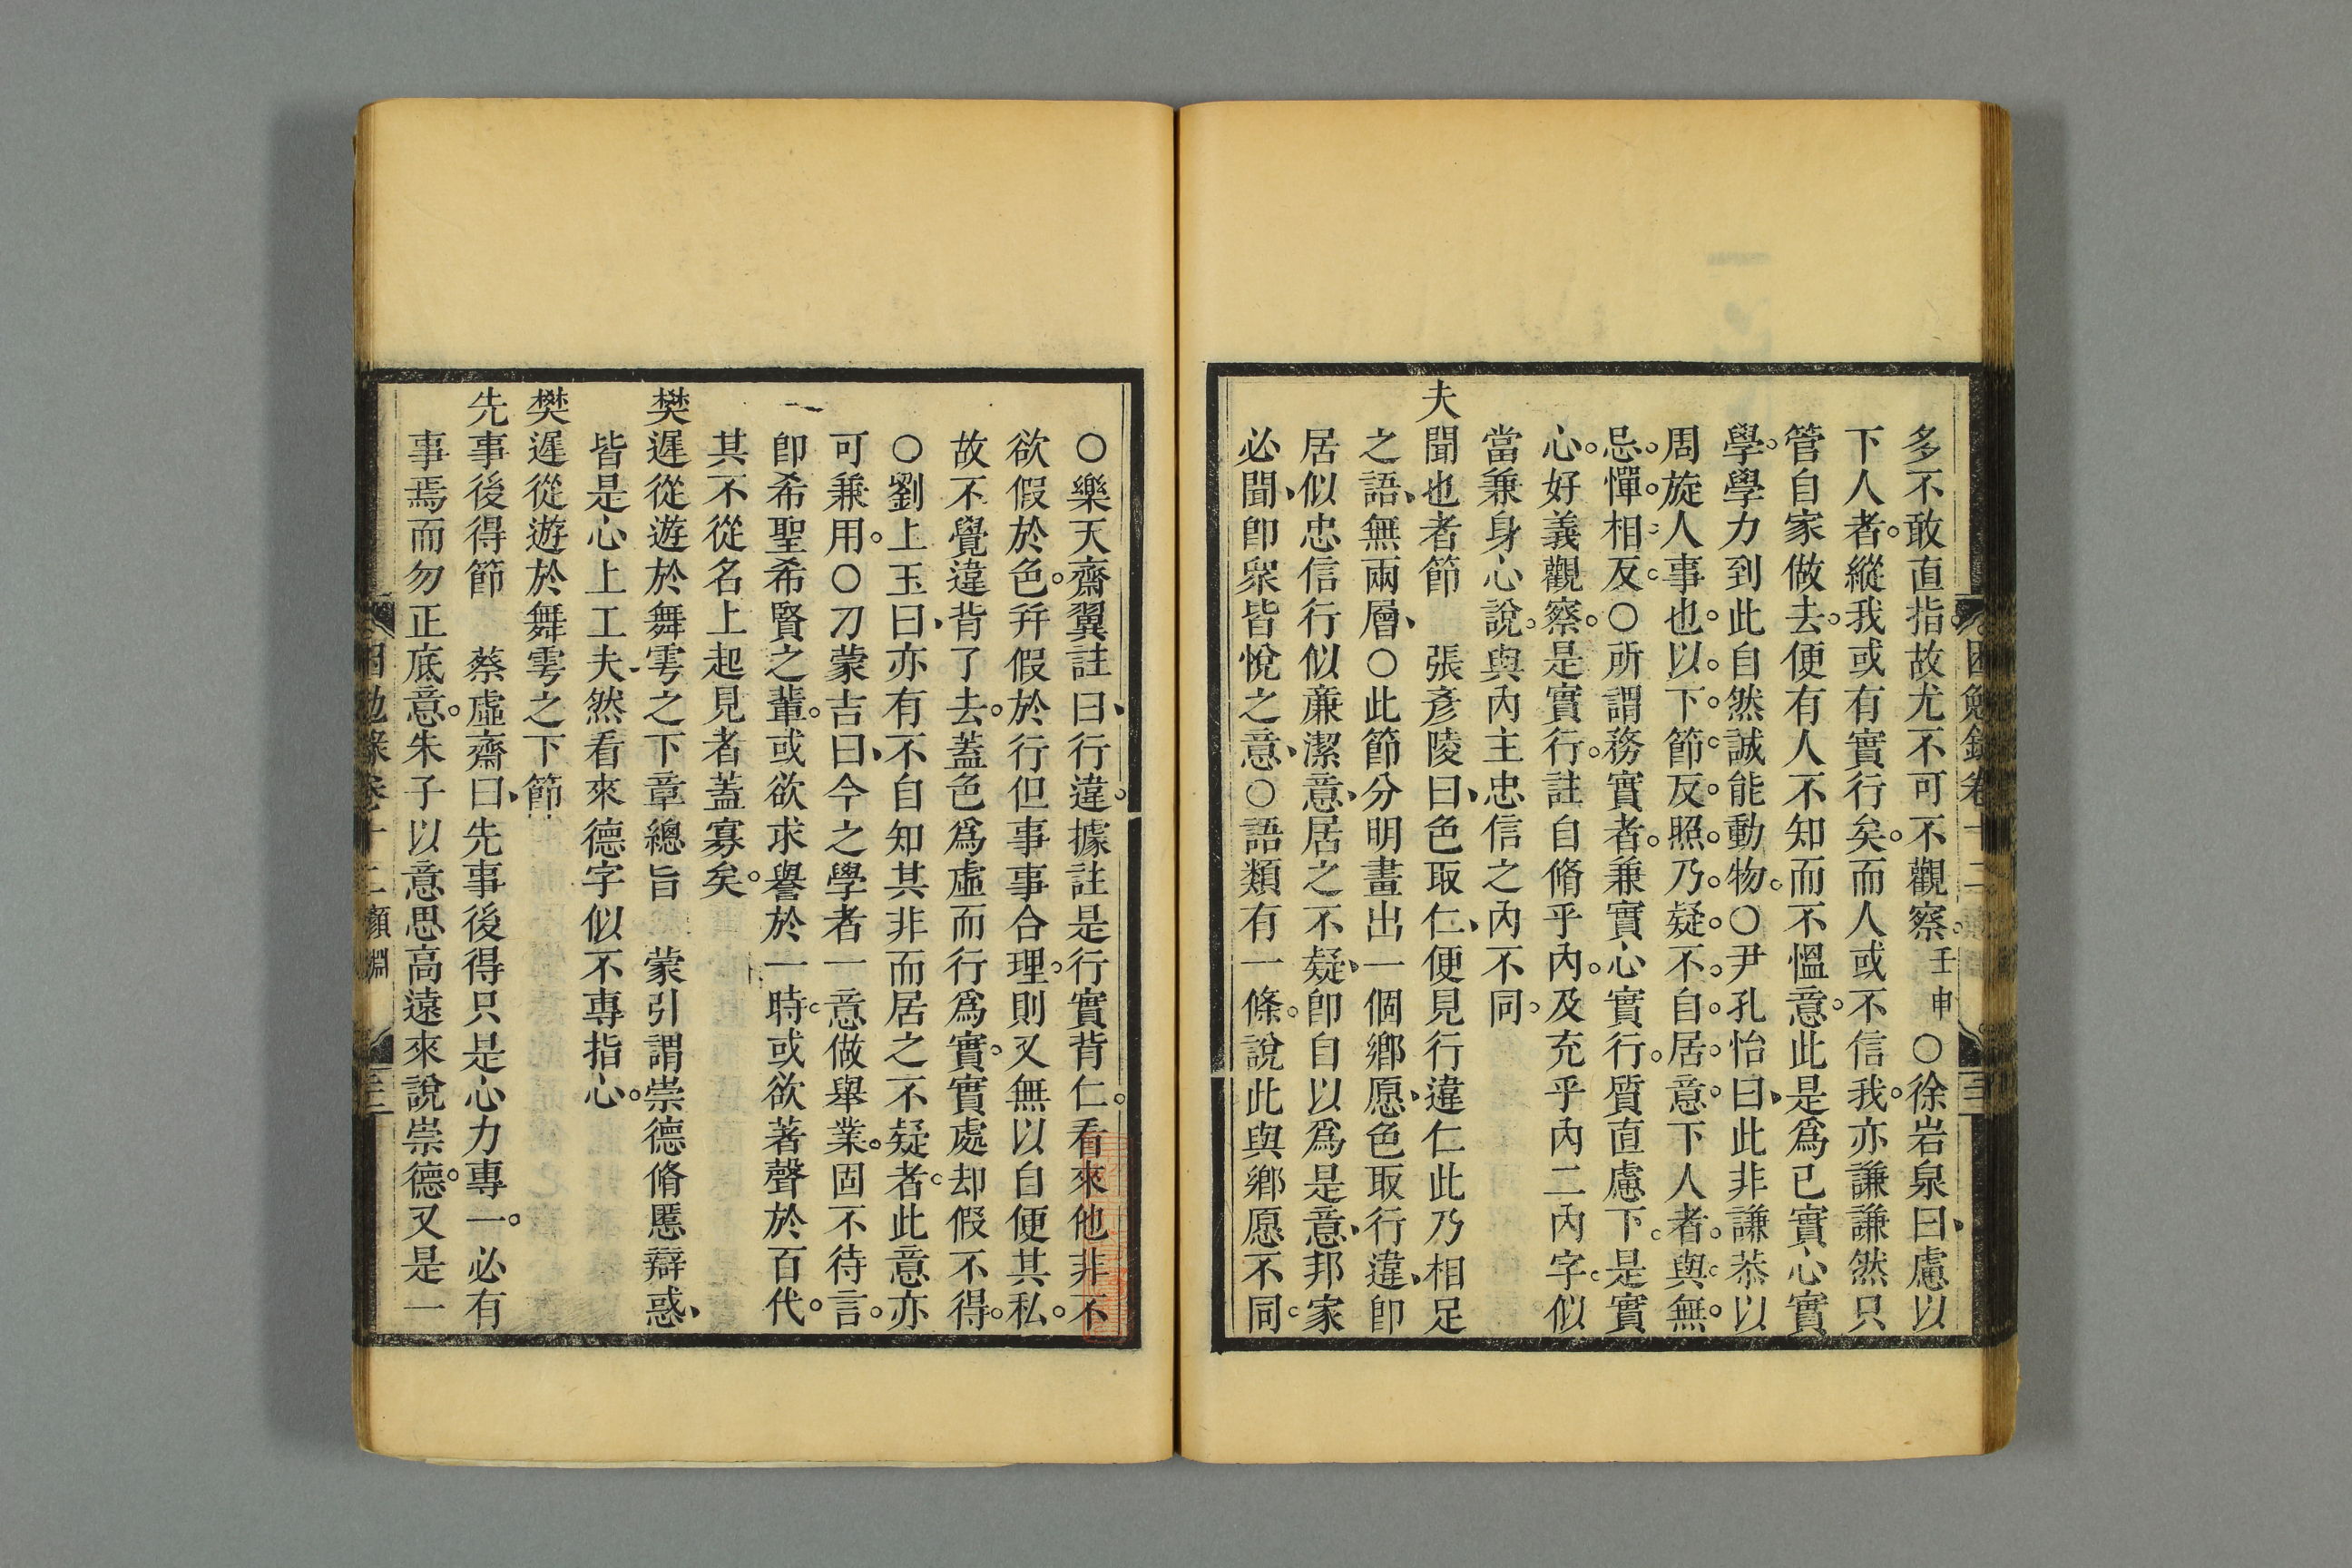 多不敢直指。故尤不可不觀察。壬申○徐岩泉曰、慮以
下人者。縱我或有實行矣。而人或不信我。亦謙謙然只
管自家做去。便有人不知而不慍意。此是爲已實心實
學。學力到此自然誠能動物。○尹孔怡曰、此非謙恭以
周旋人事也。以下節反照。乃疑不自居意。下人者。與無
忌憚相反。○所謂務實者。兼實心實行。質直慮下。是實
心。好義觀察。是實行。註自脩乎內。及充乎內二內字。似
當兼身心說。與內主忠信之內不同。
夫聞也者節 張彥陵曰、色取仁、便見行違仁此乃相足
之語、無兩層、○此節分明畫出一個鄕愿、色取行違、卽
居似忠信行似亷潔意、居之不疑、卽自以爲是意、邦家
必聞、卽衆皆悅之意、○語類有一條。說此與鄕愿不同。
○樂天齋翼註曰、行違。據註是行實背仁。看來他非不
欲假於色。幷假於行但事事合理。則又無以自便其私。
故不覺違背了去。蓋色爲虛而行爲實。實處却假不得。
○劉上玉曰、亦有不自知其非而居之不疑者。此意亦
可兼用。○刁蒙吉曰、今之學者一意做舉業。固不待言。
卽希聖希賢之輩。或欲求譽於一時。或欲著聲於百代。
其不從名上起見者蓋寡矣。
樊遲從遊於舞雩之下章總旨 蒙引謂崇德脩慝辯惑、
皆是心上工夫、然看來德字似不專指心。
樊遲從遊於舞雩之下節
先事後得節 蔡虛齋曰、先事後得只是心力專一。必有
事焉而勿正底意。朱子以意思高遠來說崇德。又是一
困勉錄卷十二 顏淵